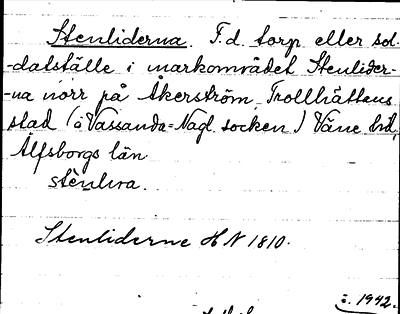 Stenliderna. F.d. torp eller sol-
-datställe i markområdet Stenlider-
-na norr på Åkerström, Trollhättans
stad (å Vassanda=Nagl. socken) Väne hd,
Älfsborgs län
stènliɷa.
Stenliderne HN 1810.
1942.